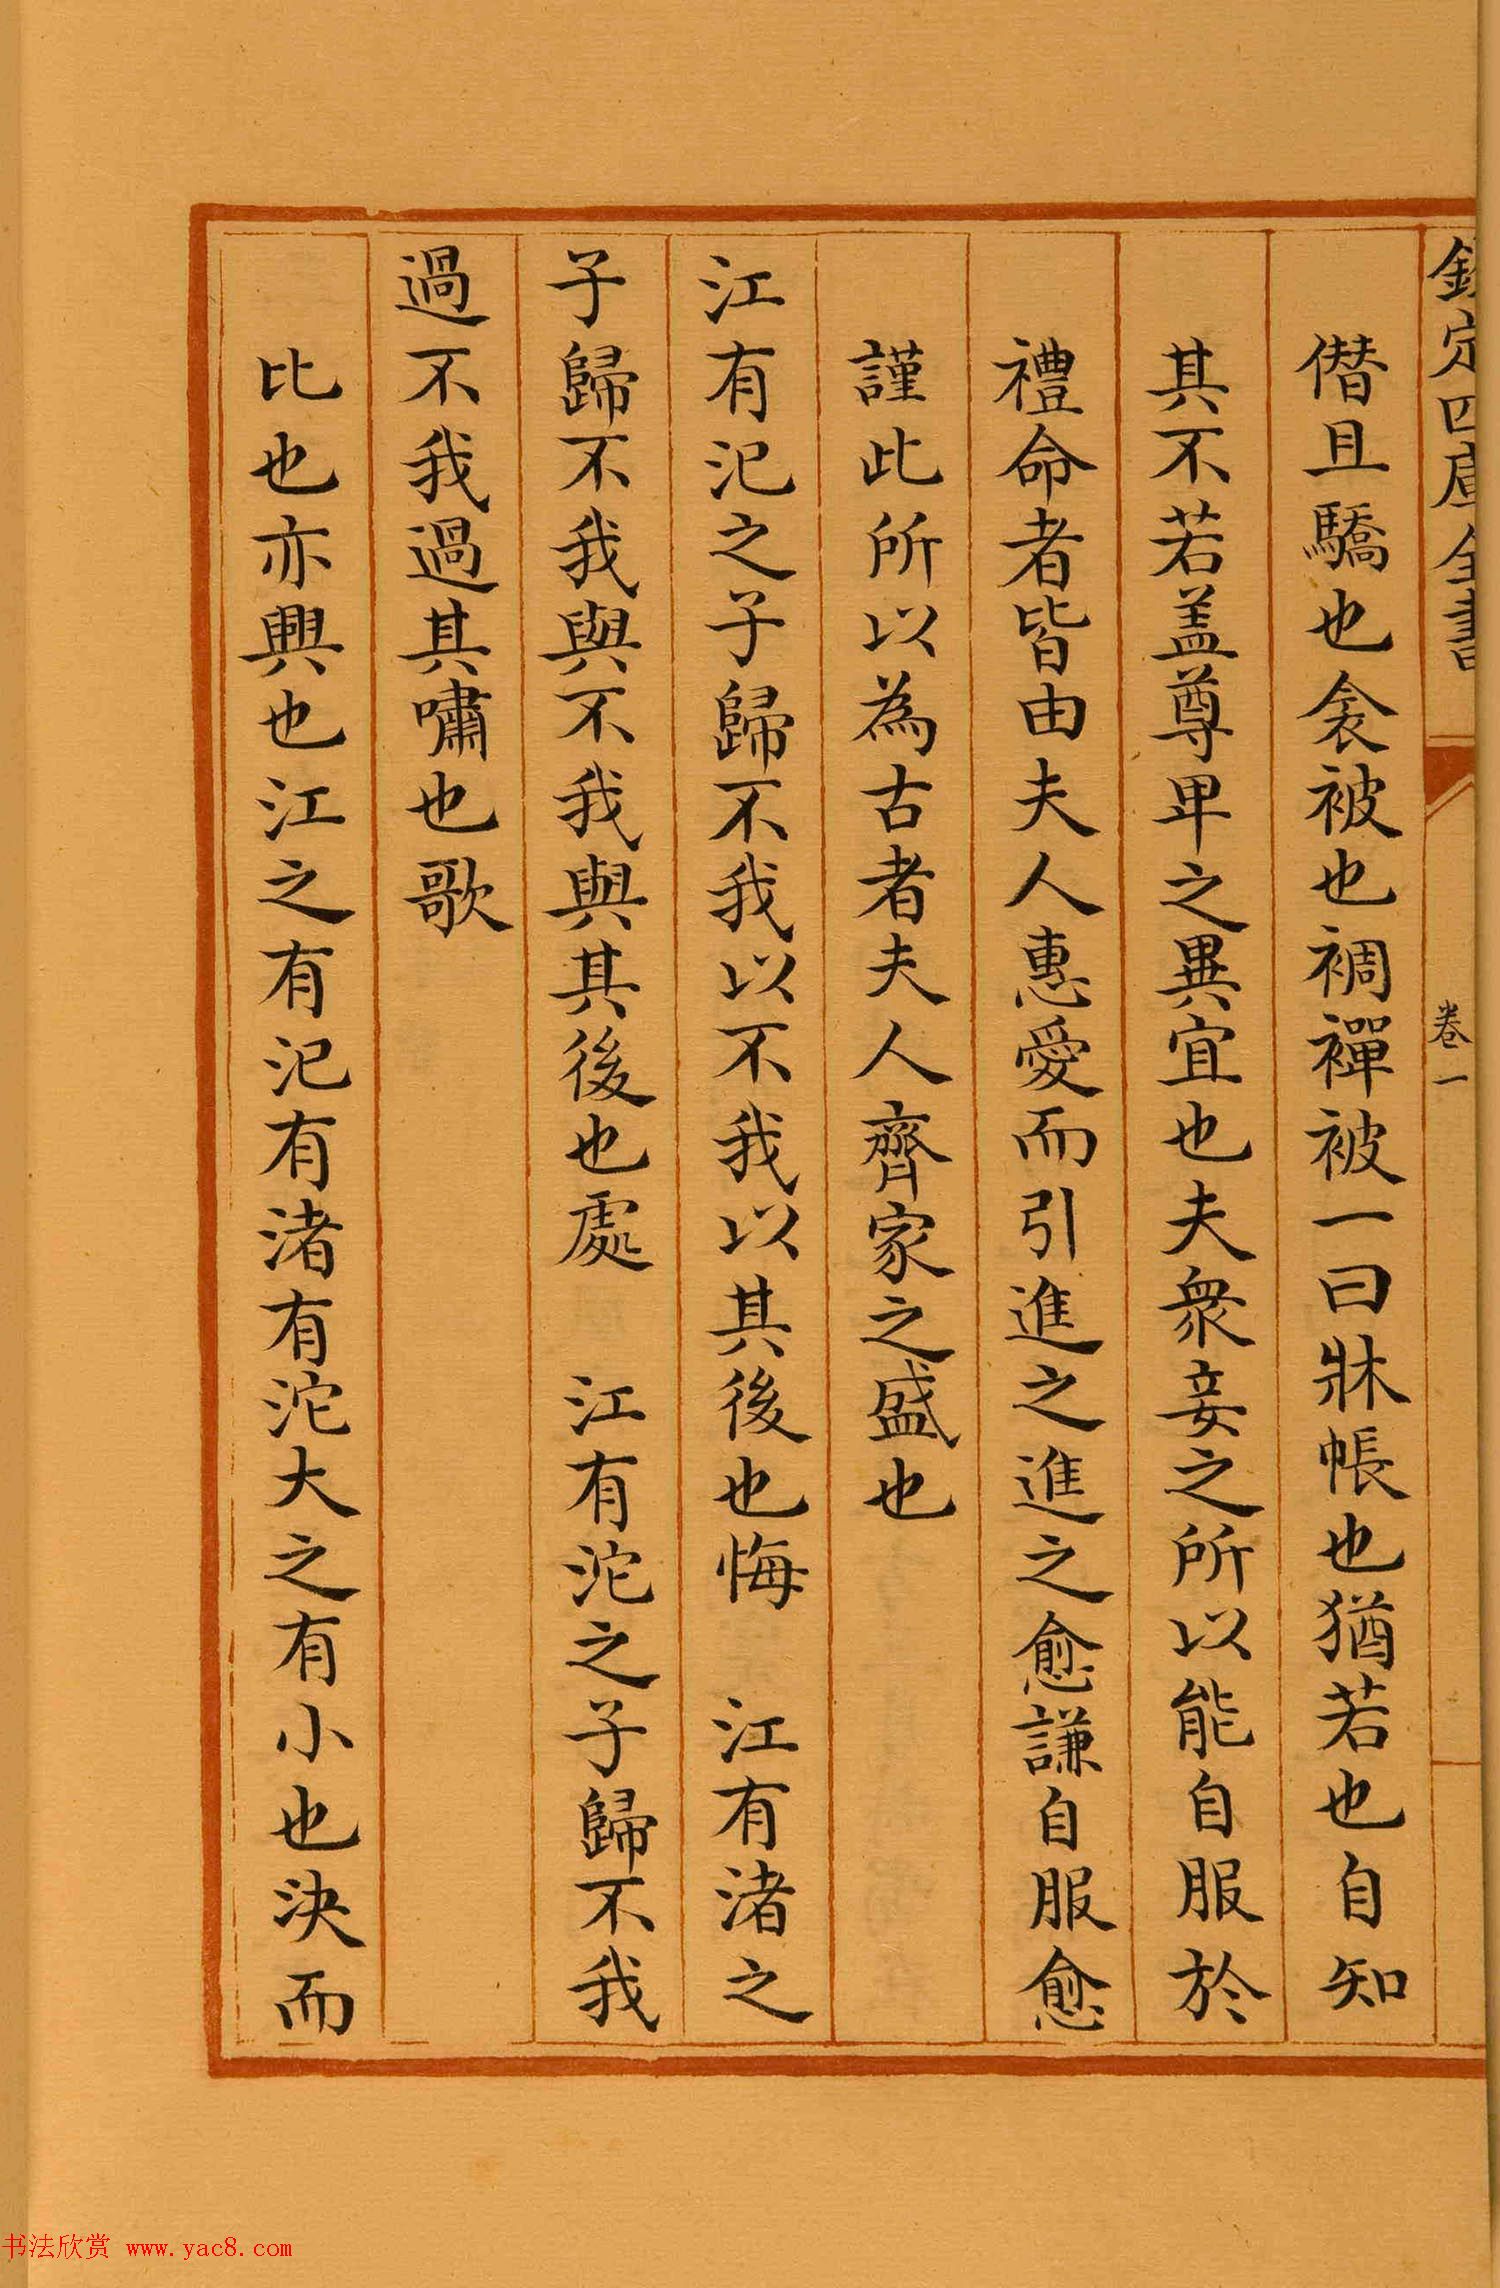 欽定四庫全書
卷一
僣且驕也衾被也裯襌被一曰牀帳也猶若也自知
其不若盖尊卑之異宜也夫衆妾之所以能自服於
禮命者皆由夫人惠愛而引進之進之愈謙自服愈
謹此所以為古者夫人齊家之盛也
江有汜之子歸不我以不我以其後也悔　江有渚之
子歸不我與不我與其後也處　江有沱之子歸不我
過不我過其嘯也歌
比也亦興也江之有汜有渚有沱大之有小也決而
书法欣赏 www.yac8.com